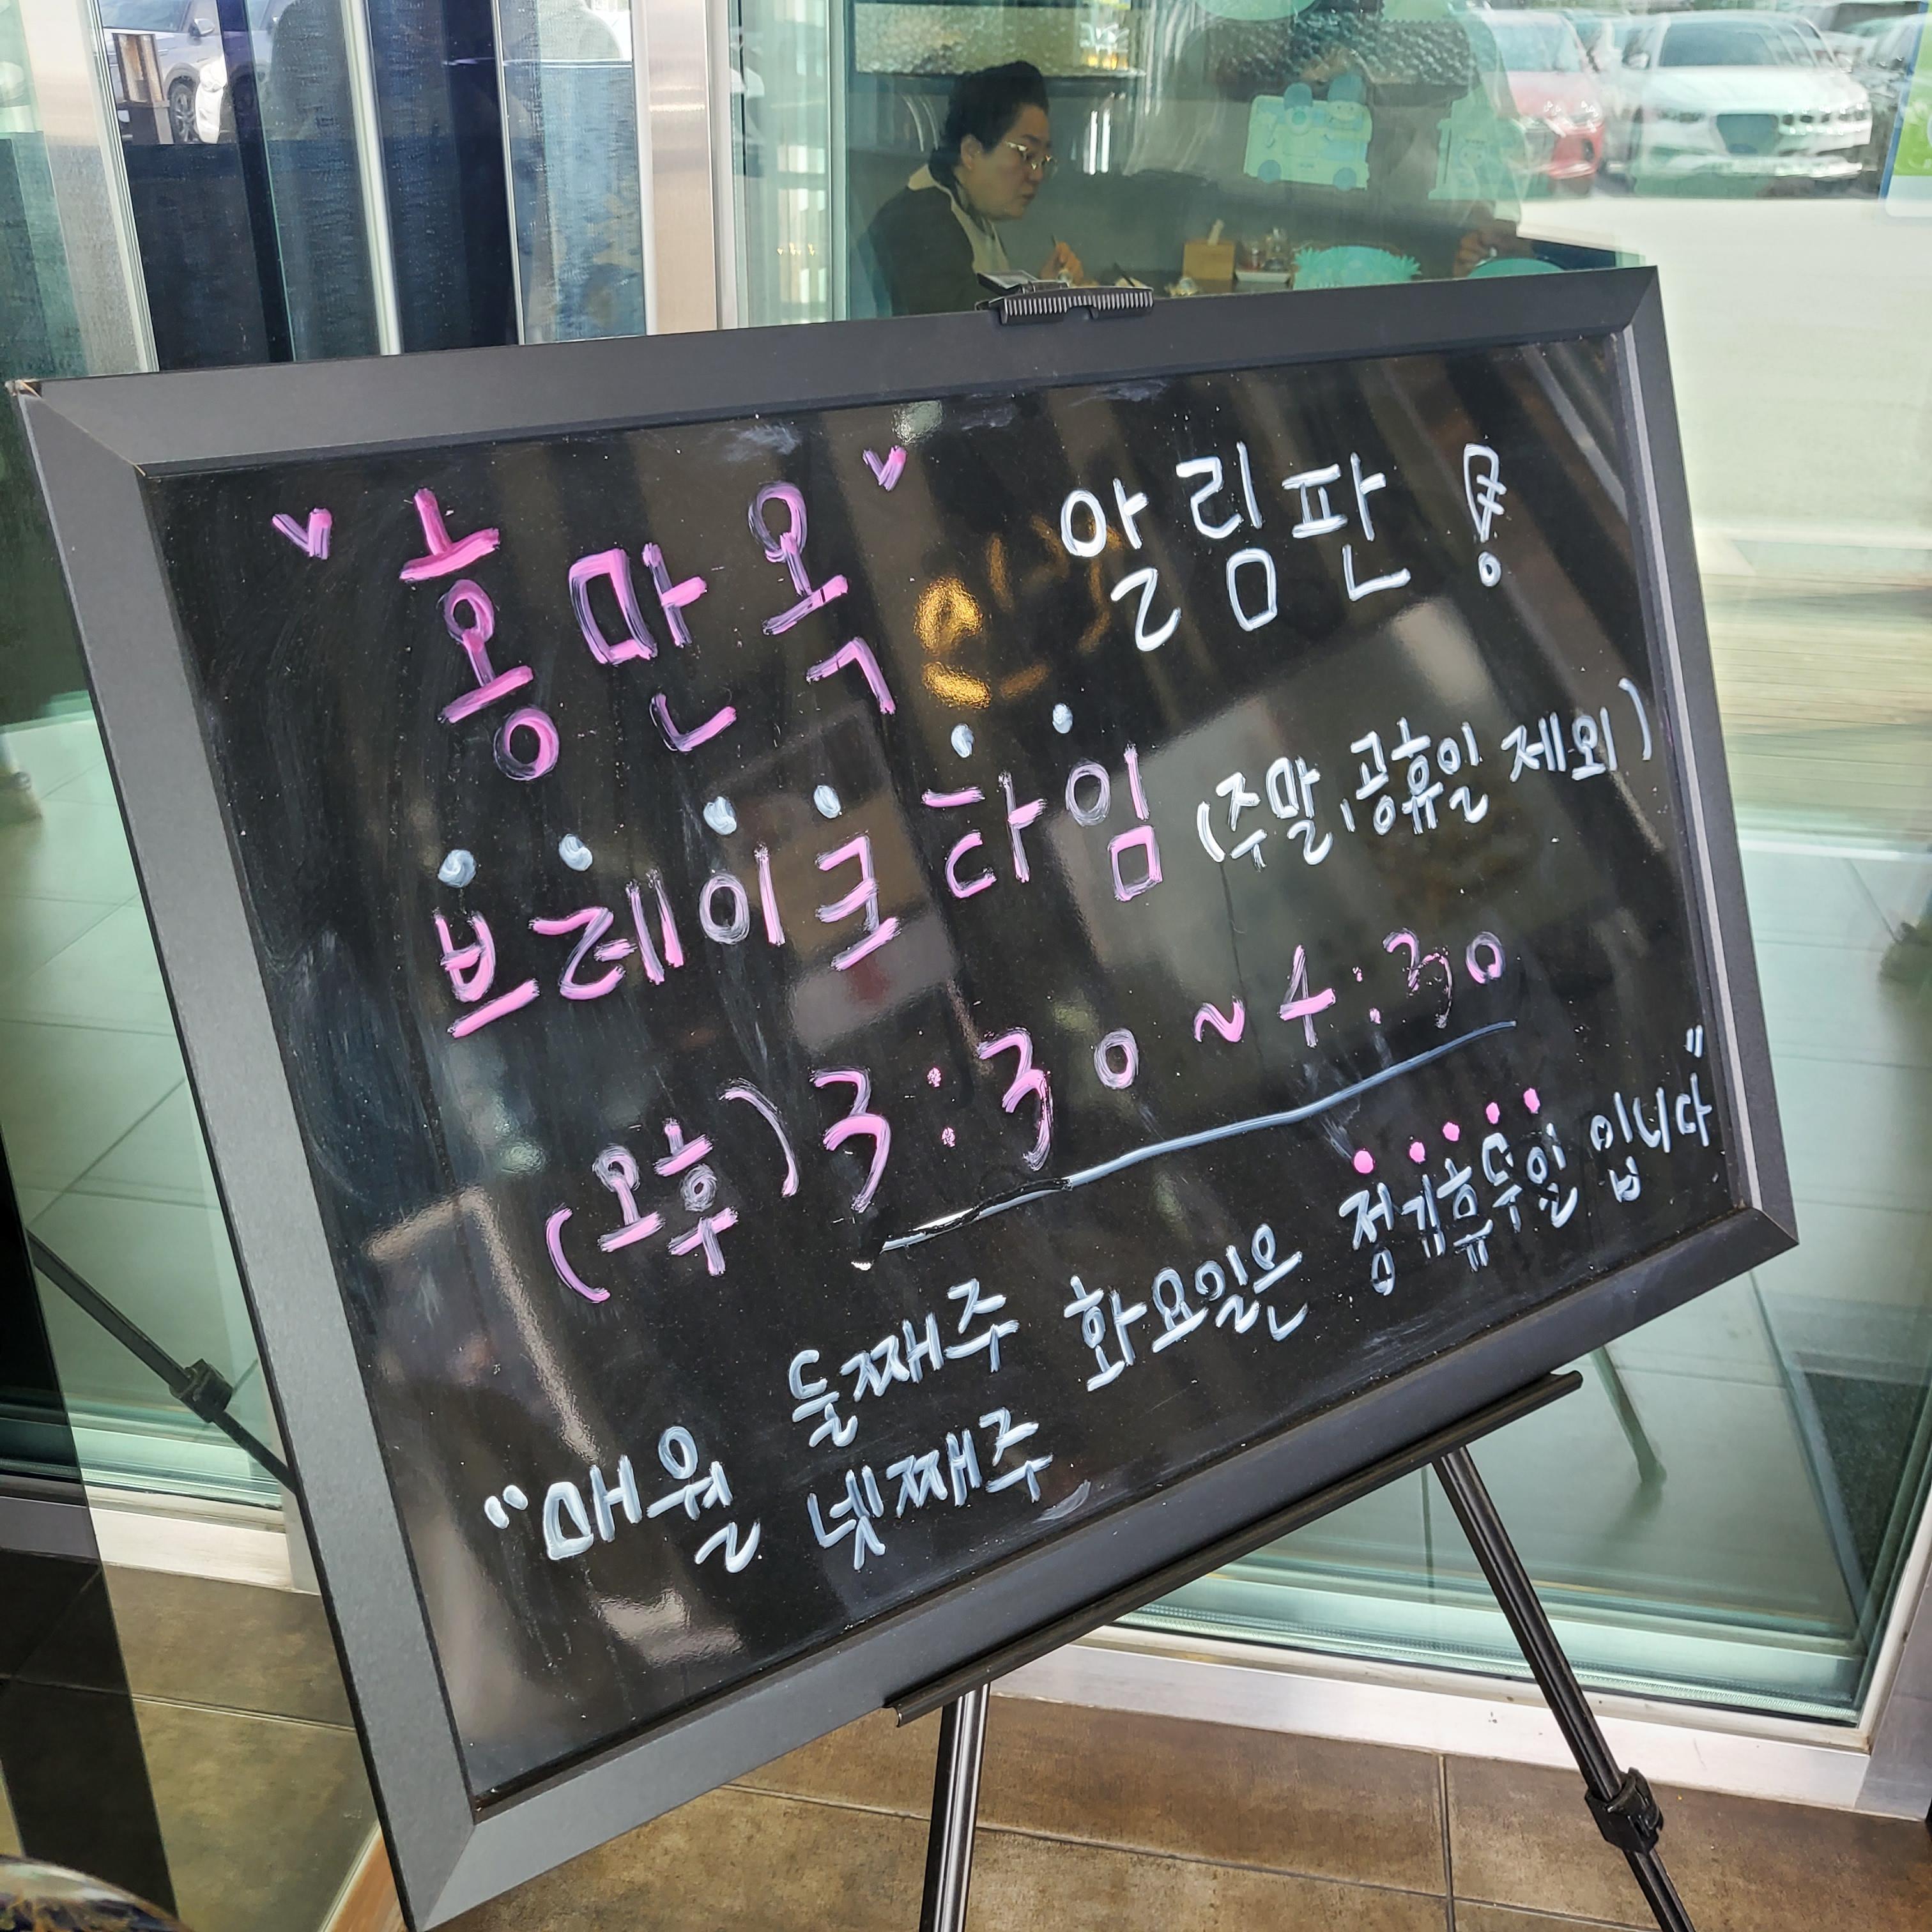 "홍만옥" 알림판!
브레이크타임 (주말, 공휴일 제외)
(오후) 3:30 ~ 4:30
"매월 둘째주 화요일은 정기휴무일 입니다"
넷째주